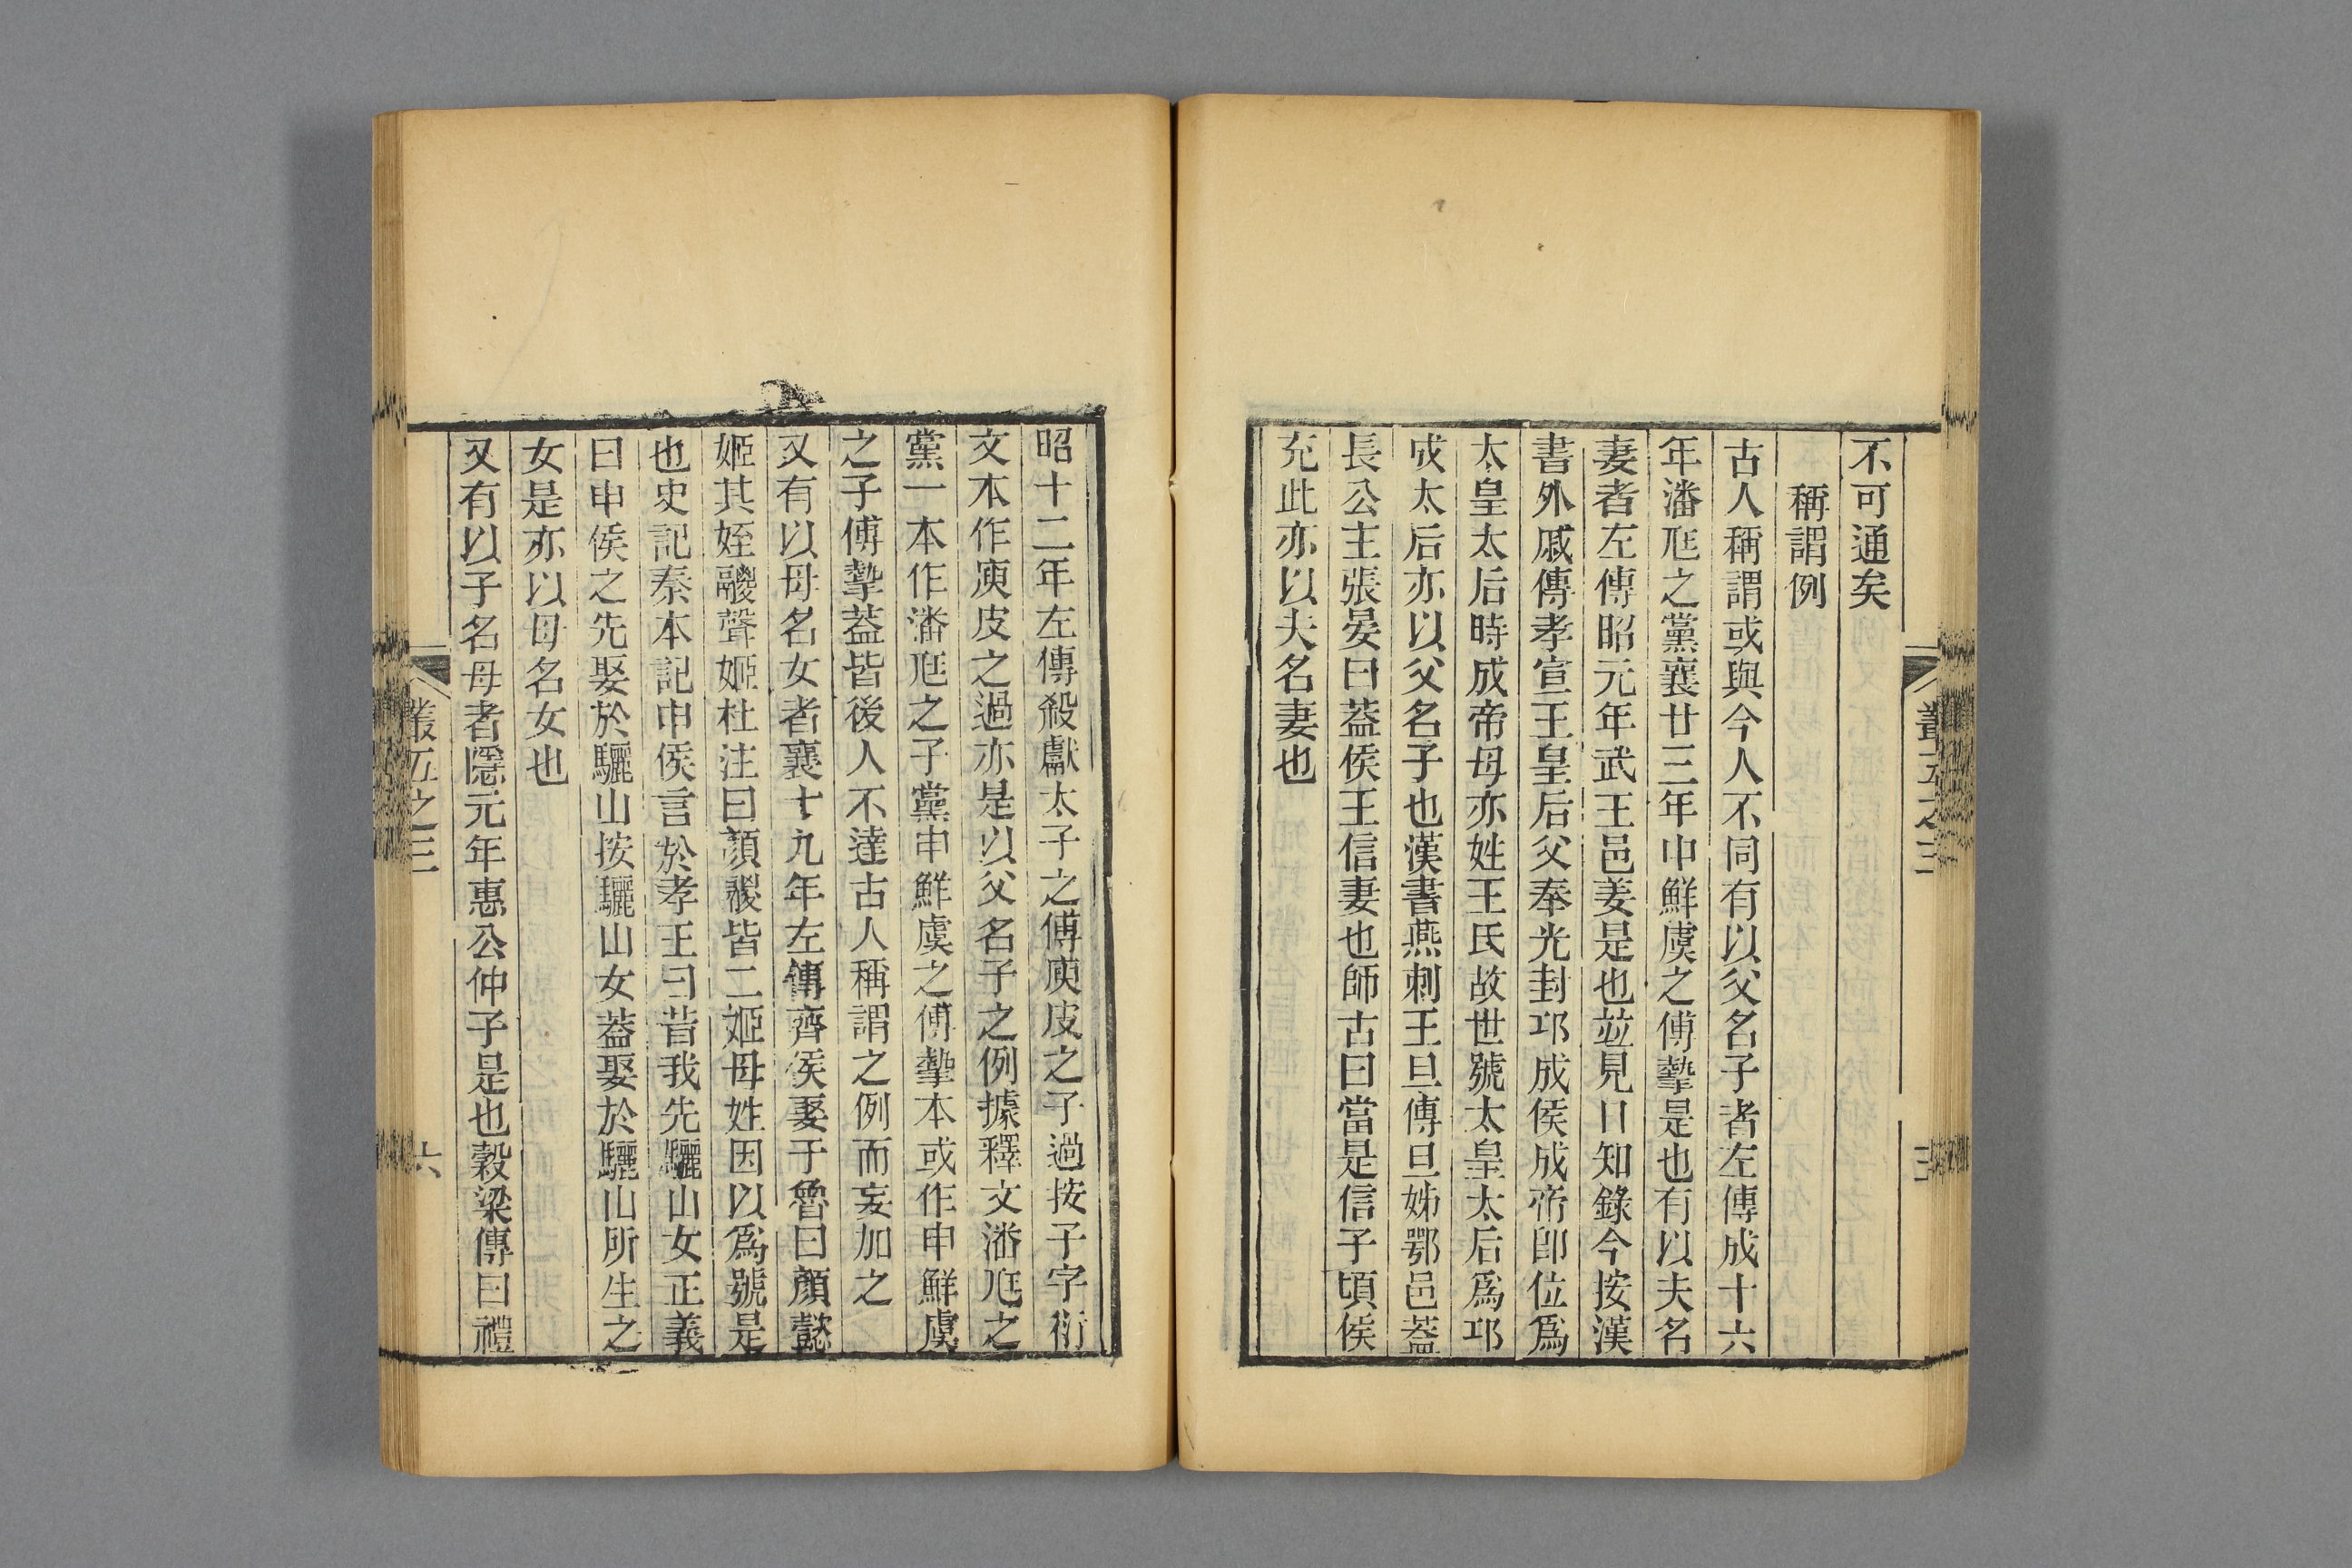 不可通矣
稱謂例
古人稱謂或與今人不同有以父名子者左傳成十六
年潘尫之黨襄廿三年申鮮虞之傅摯是也有以夫名
妻者左傳昭元年武王邑姜是也竝見日知錄今按漢
書外戚傳孝宣王皇后父奉光封邛成侯成帝卽位爲
太皇太后時成帝母亦姓王氏故世號太皇太后爲邛
成太后亦以父名子也漢書燕刺王旦傳旦姊鄂邑葢
長公主張晏曰葢侯王信妻也師古曰當是信子頃侯
充此亦以夫名妻也
叢五之三
昭十二年左傳殺獻太子之傅庾皮之子過按子字衍
文本作庾皮之過亦是以父名子之例據釋文潘尫之
黨一本作潘尫之子黨申鮮虞之傅摯本或作申鮮虞
之子傅摯葢皆後人不達古人稱謂之例而妄加之
又有以母名女者襄十九年左傳齊侯娶于魯曰顏懿
姬其姪鬷聲姬杜注曰顏鬷皆二姬母姓因以爲號是
也史記秦本記申侯言於孝王曰昔我先驪山女正義
曰申侯之先娶於驪山按驪山女葢娶於驪山所生之
女是亦以母名女也
又有以子名母者隱元年惠公仲子是也榖梁傳曰禮
叢五之三
六